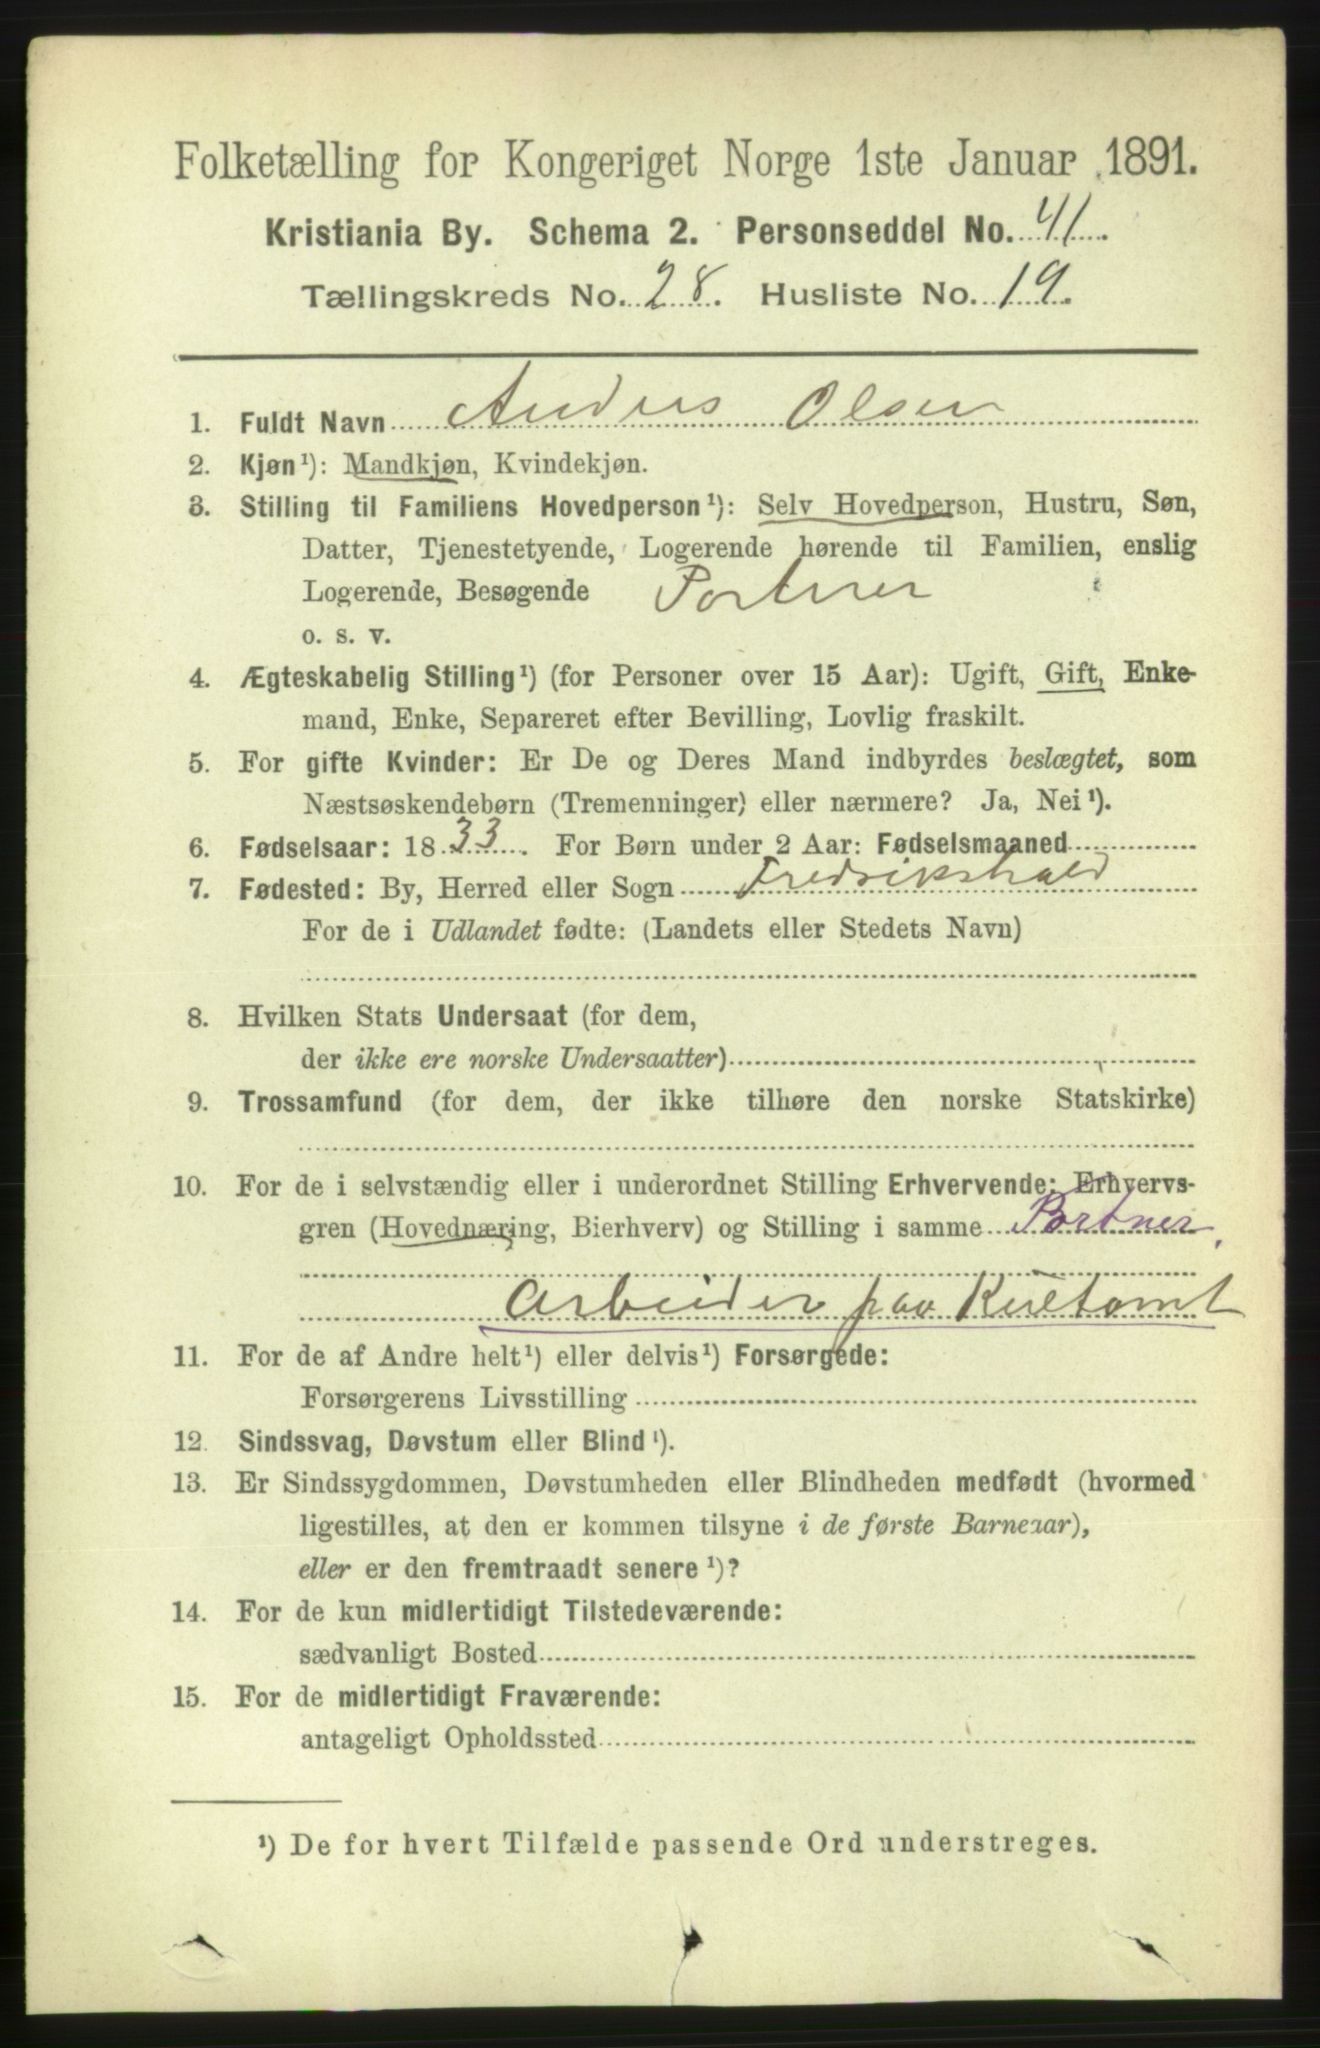 Folketælling for Kongeriget Norge 1ste Januar 1891.
Kristiania By. Schema 2. Personseddel No. 41.
Tællingskreds No. 28. Husliste No. 19.
1. Fuldt Navn Anders Olsen
2. Kjøn¹): Mandkjøn, Kvindekjøn.
3. Stilling til Familiens Hovedperson¹): Selv Hovedperson, Hustru, Søn,
Datter, Tjenestetyende, Logerende hørende til Familien, enslig
Logerende, Besøgende Portner
o. s. v.
4. Ægteskabelig Stilling¹) (for Personer over 15 Aar): Ugift, Gift, Enke-
mand, Enke, Separeret efter Bevilling, Lovlig fraskilt.
5. For gifte Kvinder: Er De og Deres Mand indbyrdes beslægtet, som
Næstsøskendebørn (Tremenninger) eller nærmere? Ja, Nei¹).
6. Fødselsaar: 1833. For Børn under 2 Aar: Fødselsmaaned
7. Fødested: By, Herred eller Sogn Fredrikshald
For de i Udlandet fødte: (Landets eller Stedets Navn)
8. Hvilken Stats Undersaat (for dem,
der ikke ere norske Undersaatter)
9. Trossamfund (for dem, der ikke tilhøre den norske Statskirke)
10. For de i selvstændig eller i underordnet Stilling Erhvervende: Erhvervs-
gren (Hovednæring, Bierhverv) og Stilling i samme Portner,
Arbeider paa
11. For de af Andre helt¹) eller delvis¹) Forsørgede:
Forsørgerens Livsstilling
12. Sindssvag, Døvstum eller Blind¹).
13. Er Sindssygdommen, Døvstumheden eller Blindheden medfødt (hvormed
ligestilles, at den er kommen tilsyne i de første Barneaar),
eller er den fremtraadt senere¹)?
14. For de kun midlertidigt Tilstedeværende:
sædvanligt Bosted
15. For de midlertidigt Fraværende:
antageligt Opholdssted
¹) De for hvert Tilfælde passende Ord understreges.